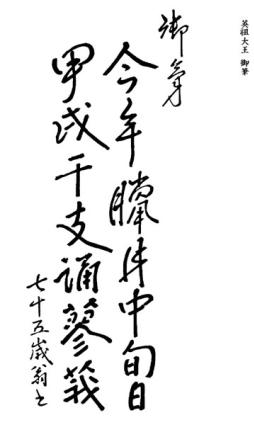 英祖大王 御筆
御筆
今年臘月中旬日
甲戌干支誦蓼莪
七十五歲翁書